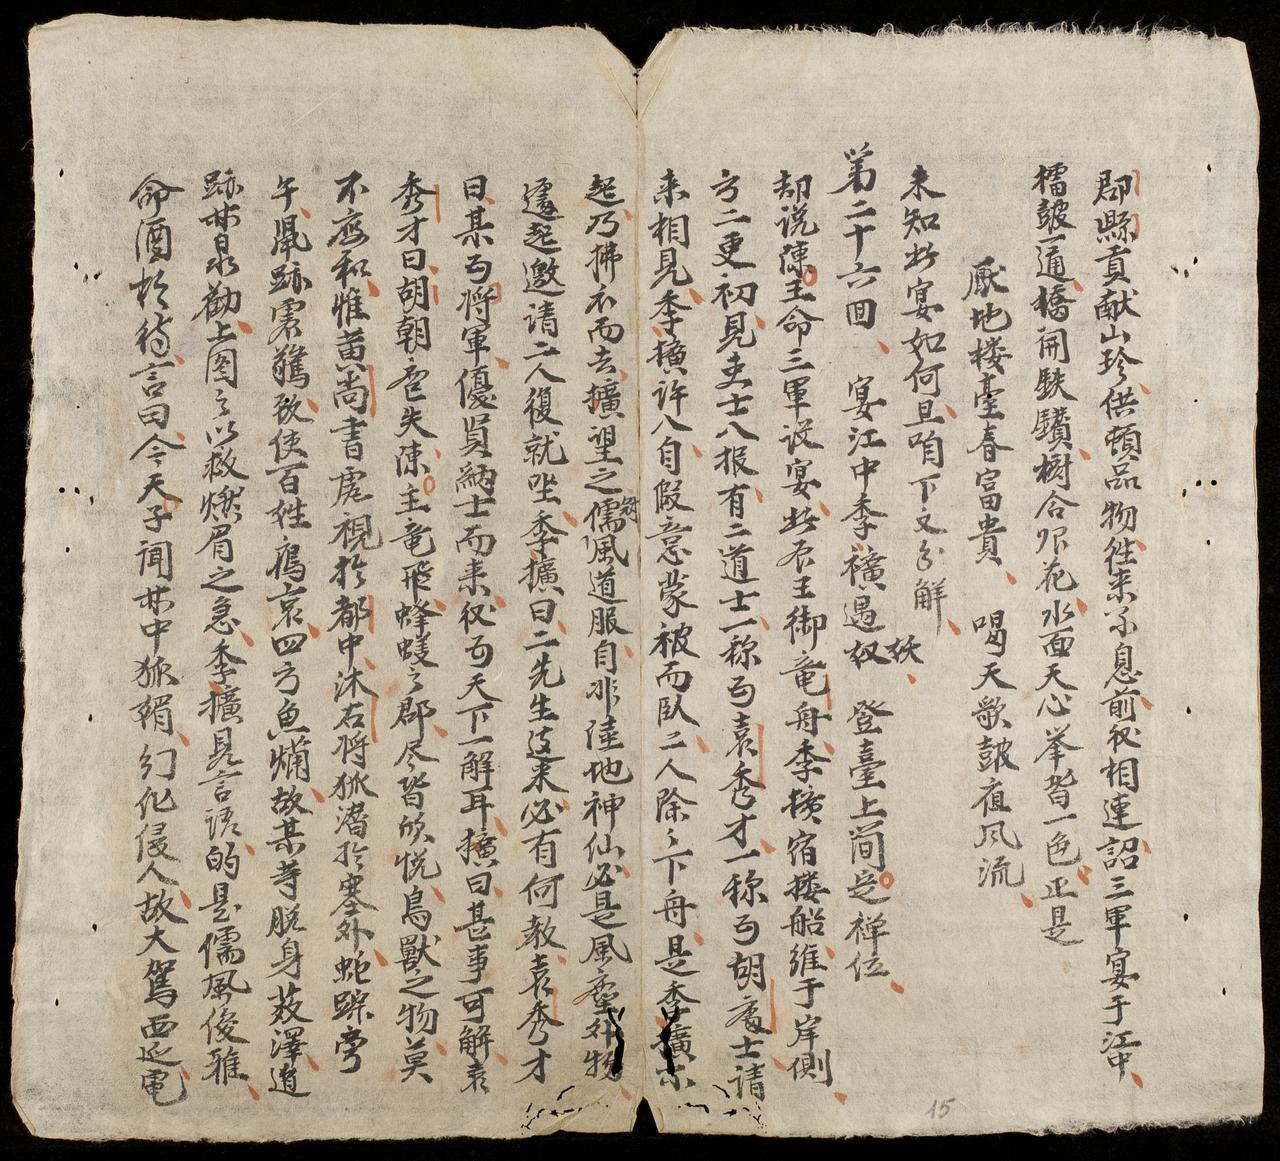 郡縣貢献山珍供頓品物徃来不息前後相連詔三軍宴于江中
擂皷一通橋開鉄鎖樹合銀花水面天心举皆一色正是
厭地楼臺春富貴 喝天歌皷夜风流
未知此宴如何且咱下文分解
第二十六回 宴江中季擴遇奴妖 登臺上簡定禅位
却说陳王命三軍设宴此夜王御竜舟季擴宿搂船維于岸側
方二更初見吏士入报有二道士一称为袁秀才一称为胡處士請
来相見季擴许入自假意蒙被而臥二人除々下舟是季擴不
起乃拂衣而去擴望之儒風道服自非陸地神仙必是風塵外物
遽起邀请二人復就坐季擴曰二先生这来必有何教袁秀才
曰某为将軍優賢納士而来欲为天下一解耳擴曰甚事可解袁
秀才曰胡朝既失陳主竜飛蜂蟻之郡尽皆欣悦鳥獸之物莫
不應和惟黄尚書虎視於都中沐右将狐潛於塞外蛇踪旁
午鼠跡雾驚致使百姓鴈哀四方魚爛故某等脱身薮澤道
跡林泉勸上图之以救燃眉之急季擴見言語的是儒風俊雅
命酒於待言曰今天子闻林中狐媚幻化侵人故大駕西巡電
15